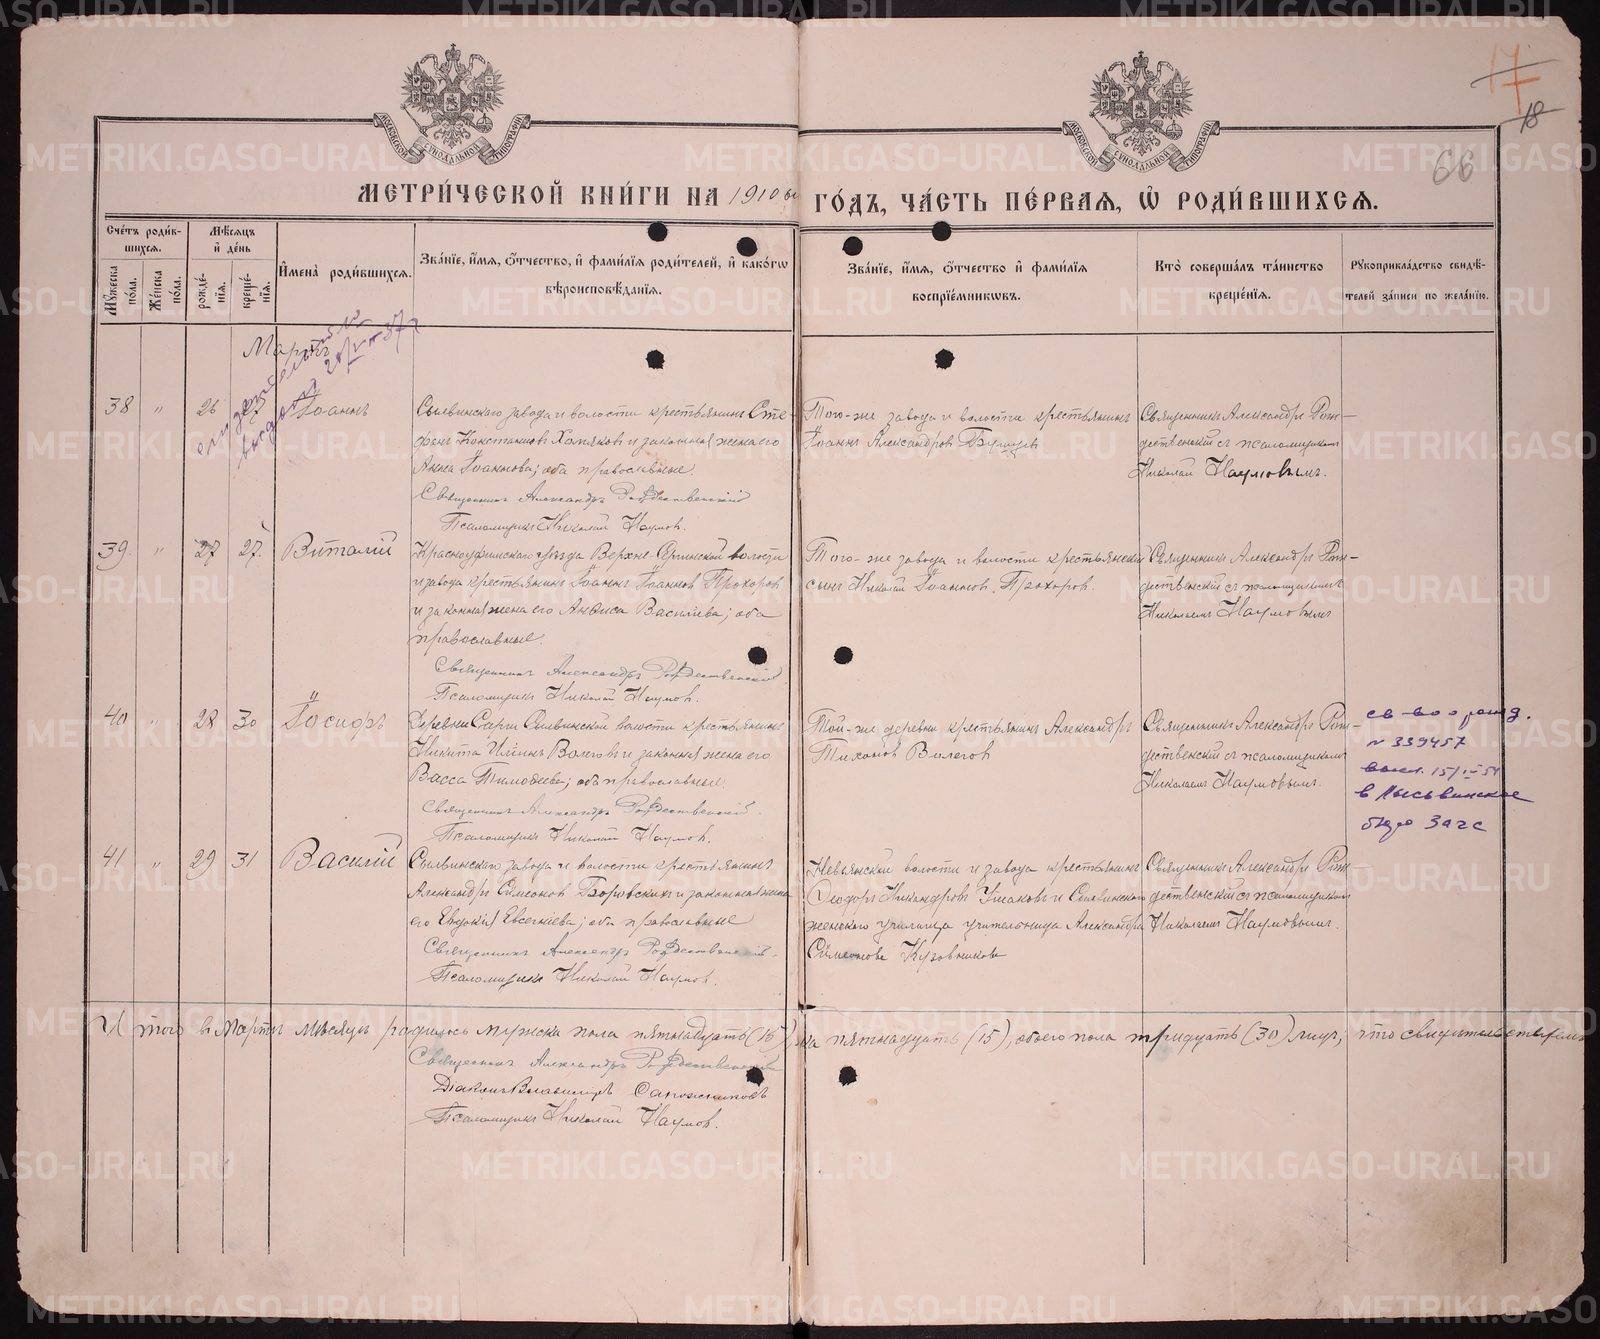 МОСКОВСКОЙ СѴНОДАЛЬНОЙ ТИПОГРАФІИ
МОСКОВСКОЙ СѴНОДАЛЬНОЙ ТИПОГРАФІИ
17
18
66
МЕТРИ́ЧЕСКОЙ КНИ́ГИ НА 1910 ый ГО́ДЪ, ЧА́СТЬ ПЕ́РВАЯ, Ѽ РОДИ́ВШИХСЯ.
Сче́тъ роди́в-
шихся.
Мѣ́сяцъ
и҆ де́нь
Мꙋ́жеска по́ла.
Же́нска по́ла.
рожде́-
нїя.
креще́-
нїя.
И҆мена̀ роди́вшихся.
Зва́нїе, и҆́мя, ѻ҆́тчество, и҆ фами́лїя роди́телей, и҆ како́гѡ
вѣроисповѣ́данїя.
Зва́нїе, и҆́мя, ѻ҆́тчество и҆ фами́лїя
воспрїе́мниковъ.
Кто̀ соверша́лъ та́инство
креще́нїя.
Рꙋкоприкла́дство свидѣ́-
телей за́писи по жела́нїю.
Мартъ
38 " 26 27 Іоаннъ
Сылвинскаго завода и волости крестьянинъ Сте-
фанъ Константиновъ Хомяковъ и законная жена его
Анна Іоаннова; оба православные.
Священникъ Александръ Рождественскій
Псаломщикъ Николай Наумов.
Того-же завода и волости крестьянинъ
Іоаннъ Александровъ
Священникъ Александръ Рож-
дественскій съ псаломщикомъ
Николай Наумовымъ.
39. " 27 27. Виталій
Красноуфимскаго уѣзда Верхне-Сергинской волости
и завода крестьянинъ Іоаннъ Іоаннов Прохоров
и законная жена его Анѳиса Василіева; оба
православные.
Священникъ Александръ Рождественскій
Псаломщикъ Николай Наумов.
Того-же завода и волости крестьянскій
сынъ Николай Іоаннов. Прохоров.
Священникъ Александръ Рож-
дественскій съ псаломщикомъ
Николаемъ Наумовымъ
40 " 28 30 Іосифъ
Деревни Сарги Сылвинской волости крестьянинъ
Никита Волеговъ и законная жена его
Васса Тимоѳеева; оба православные.
Священникъ Александръ Рождественскій.
Псаломщикъ Николай Наумов.
Той-же деревни крестьянинъ Александръ
Тихонов Волегов
Священникъ Александръ Рож-
дественскій съ псаломщикомъ
Николаемъ Наумовымъ.
св-во о рожд.
№ 339457
в Лысьвинское
бюро Загс
41 " 29 31 Василій
Сылвинскаго завода и волости крестьянинъ
Александръ Симеонов Боровскихъ и законная жена
его Евдокія Евсигніева; оба православные
Священникъ Александръ Рождественскій.
Псаломщикъ Николай Наумов.
Невьянской волости и завода крестьянинъ
Ѳеодоръ Никандровъ Ушаковъ и Сылвинскаго
женскаго училища учительница Александра
Симеонова Кузовникова
Священникъ Александръ Рож-
дественскій съ псаломщикомъ
Николаемъ Наумовымъ.
Итого въ Мартѣ мѣсяцѣ родилось мужска пола пятнадцать (15), на пятнадцать (15), обоего пола тридцать (30) лицъ; что свидѣтельствуемъ
Священникъ Александръ Рождественскій
Діаконъ Владиміръ Сапожниковъ
Псаломщикъ Николай Наумов.
METRIKI.GASO-URAL.RU